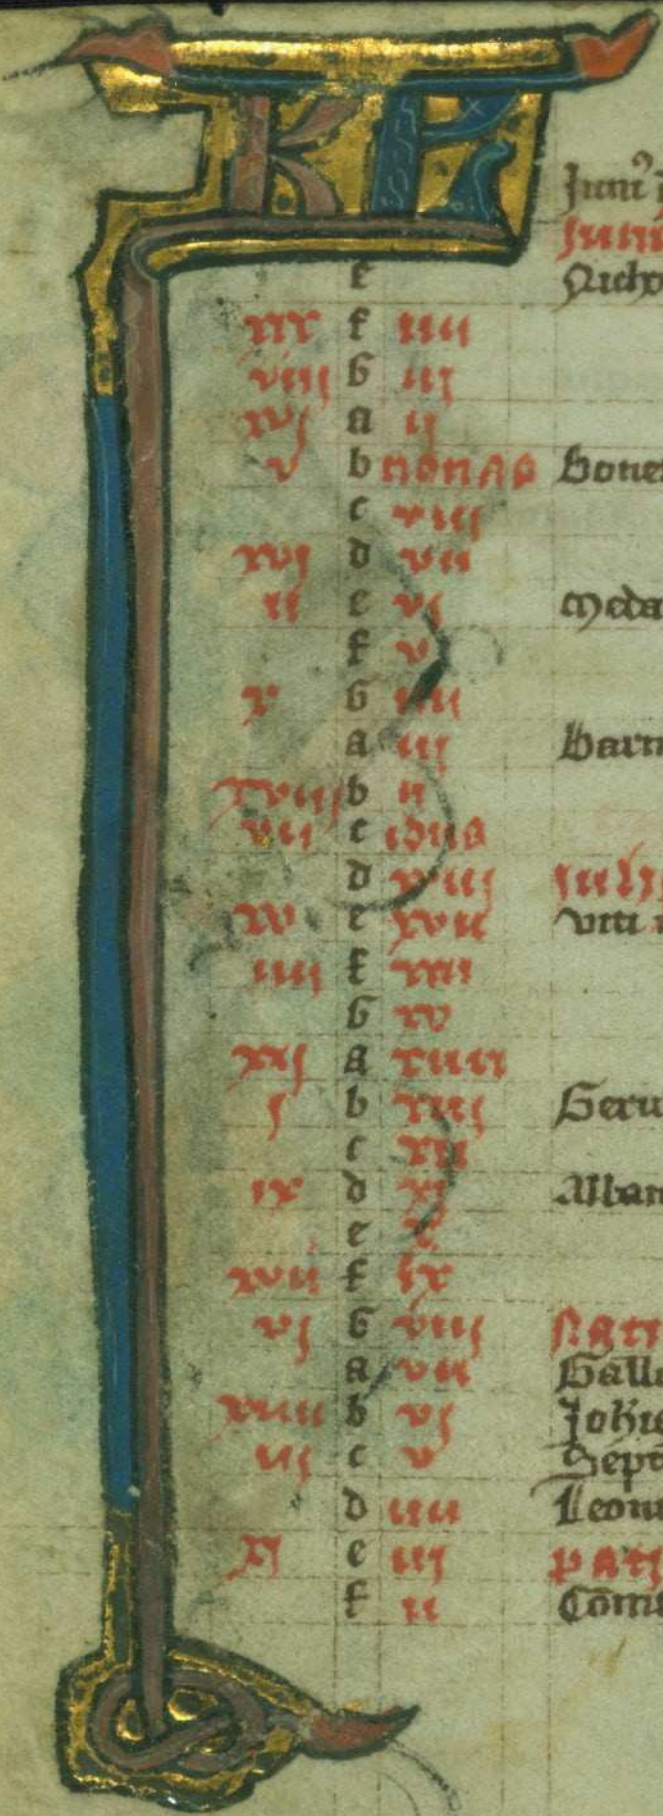 KL
Juni
Juni
e Nicho
xix f iiii
viii G iij
xvj a ij
v b nonas Bone
c viij
xiij d vii
ij e vj Meda
f v
x G iiij
a iij Barn
xviij b ij
vii c idus
d xviij iulij
xv e xvii Viti
iiii f xvi
G xv
xij a xiiii
j b xiij Geru
c xii
ix d xj Alban
e x
xvii f ix
vj G viij Nati
a vii Galli
xiiii b vj Johis
iij c v Sept
d iiii Leon
xj e iij
f ii Com